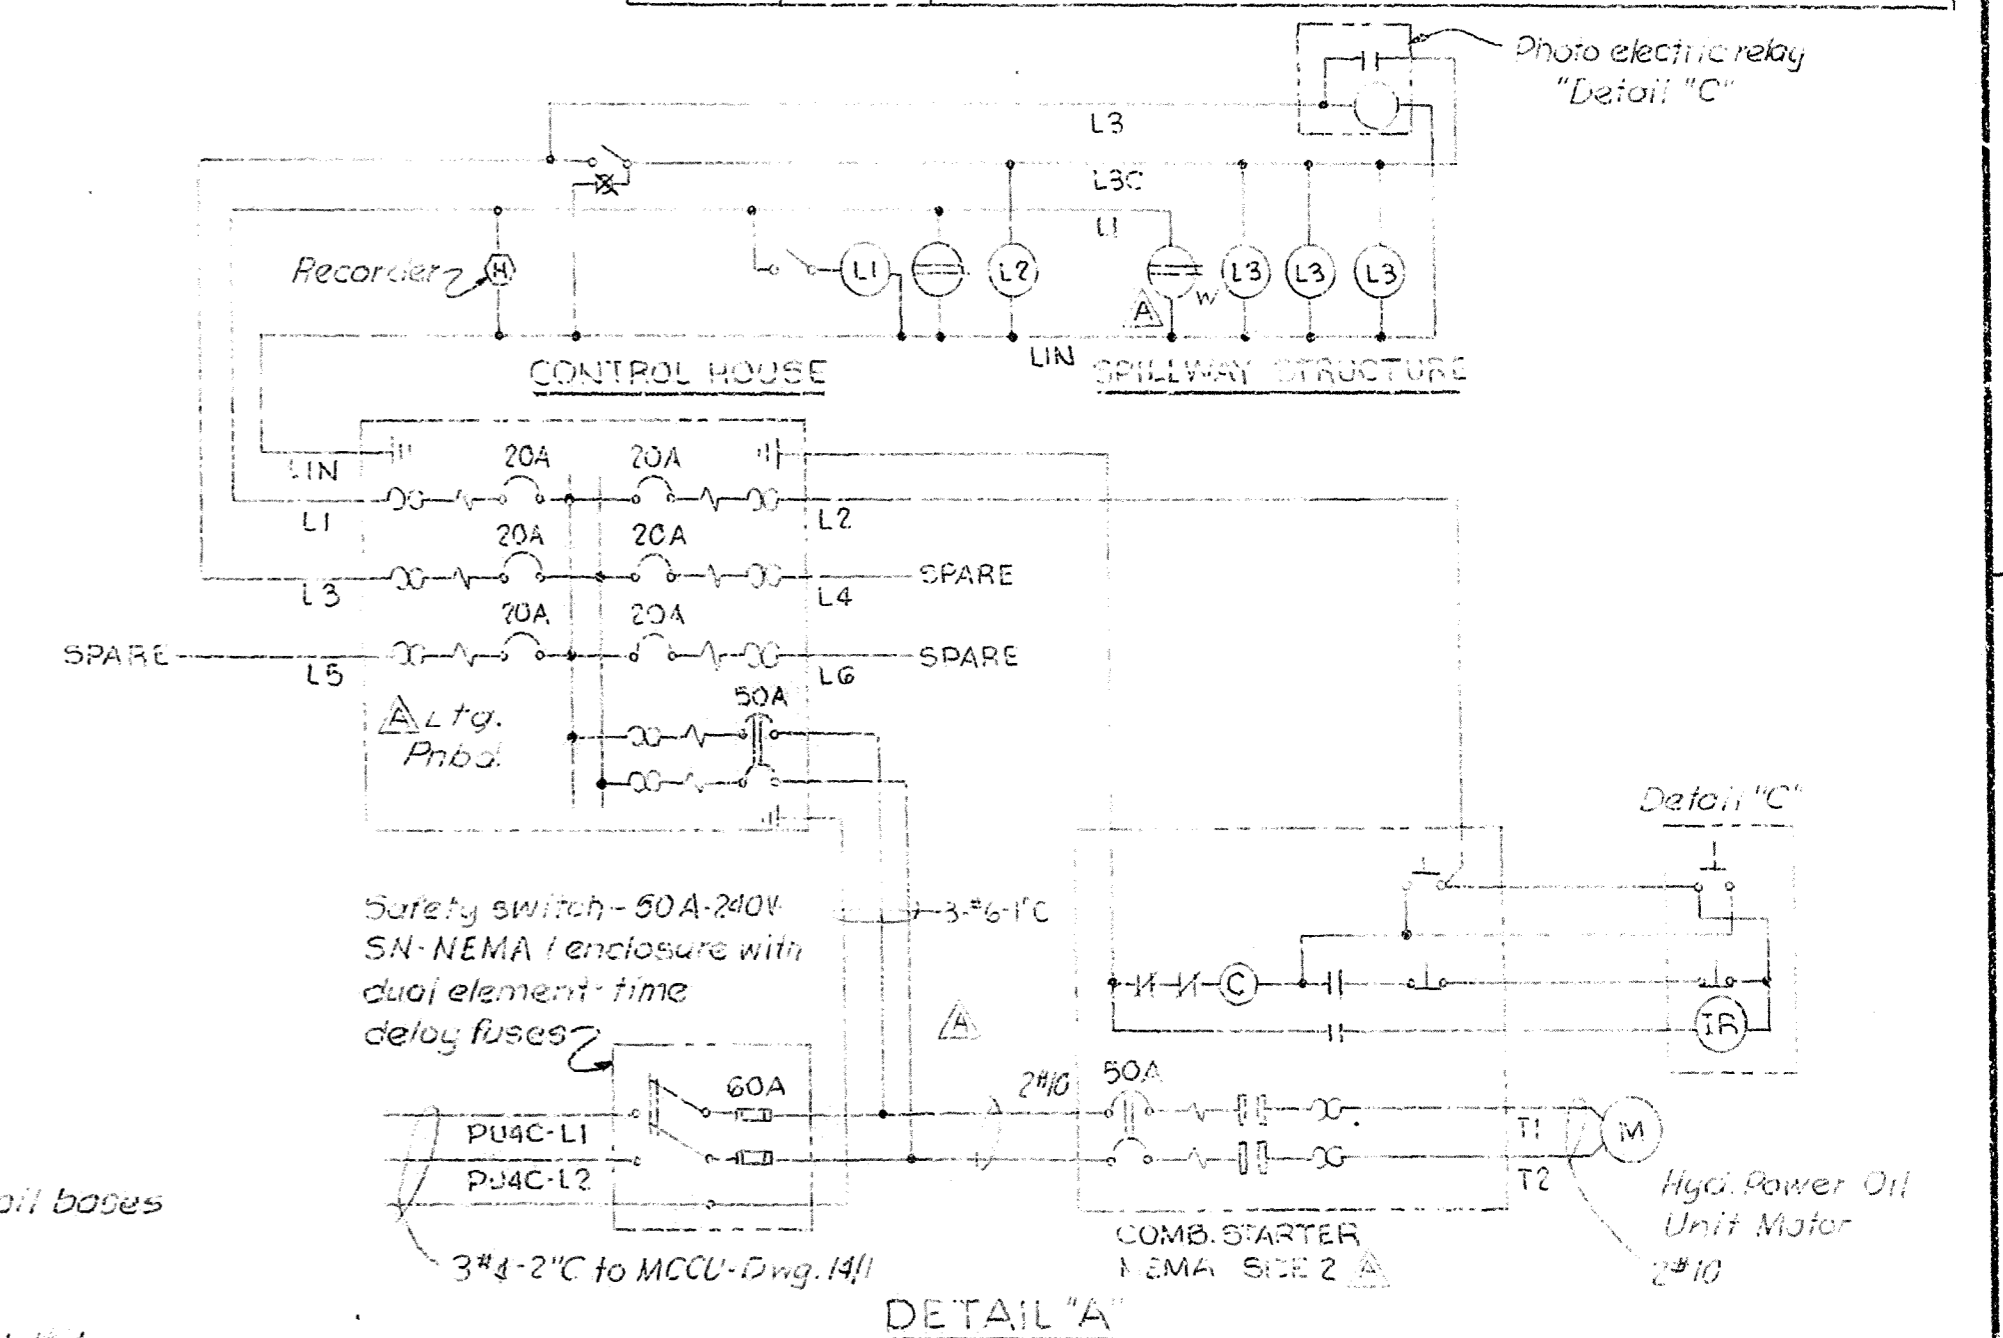 Photo electric relay
"Detail "C"
L3
L3C
L1
Recorder
H
L1
L2
L3
L3
L3
A
W
LIN
CONTROL HOUSE
SPILLWAY STRUCTURE
LIN
20A
20A
L1
L2
20A
20A
L3
L4
SPARE
20A
20A
SPARE
L5
L6
SPARE
50A
A Ltg.
Pnbd.
Detail "C"
Safety switch-60A-240V
SN-NEMA 1 enclosure with
dual element-time
delay fuses
3-#6-1"C
C
IR
A
60A
2#10
50A
PU4C-L1
PU4C-L2
T1
T2
M
Hyd. Power Oil
Unit Motor
2#10
oil bases
3#4-2"C to MCCU-Dwg. 14/1
COMB. STARTER
NEMA SIZE 2 A
DETAIL "A"